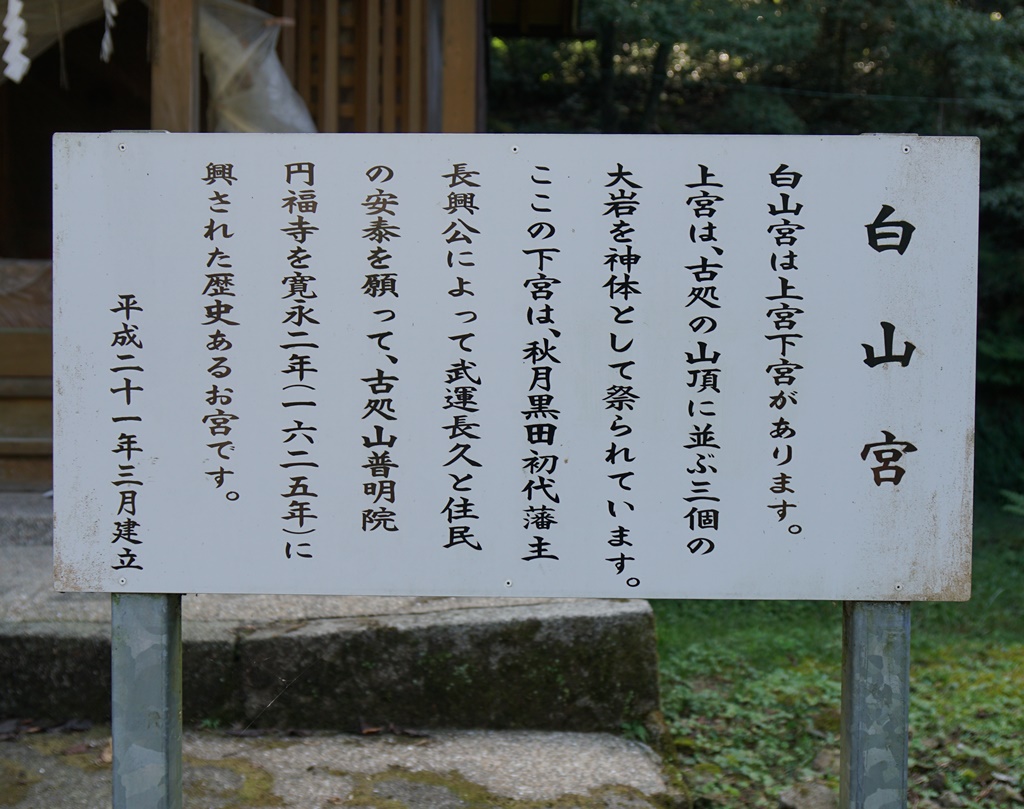 白山宮
白山宮は上宮下宮があります。
上宮は、古処の山頂に並ぶ三個の
大岩を神体として祭られています。
ここの下宮は、秋月黒田初代藩主
長興公によって武運長久と住民
の安泰を願って、古処山普明院
円福寺を寛永二年(一六二五年)に
興された歴史あるお宮です。
平成二十一年三月建立